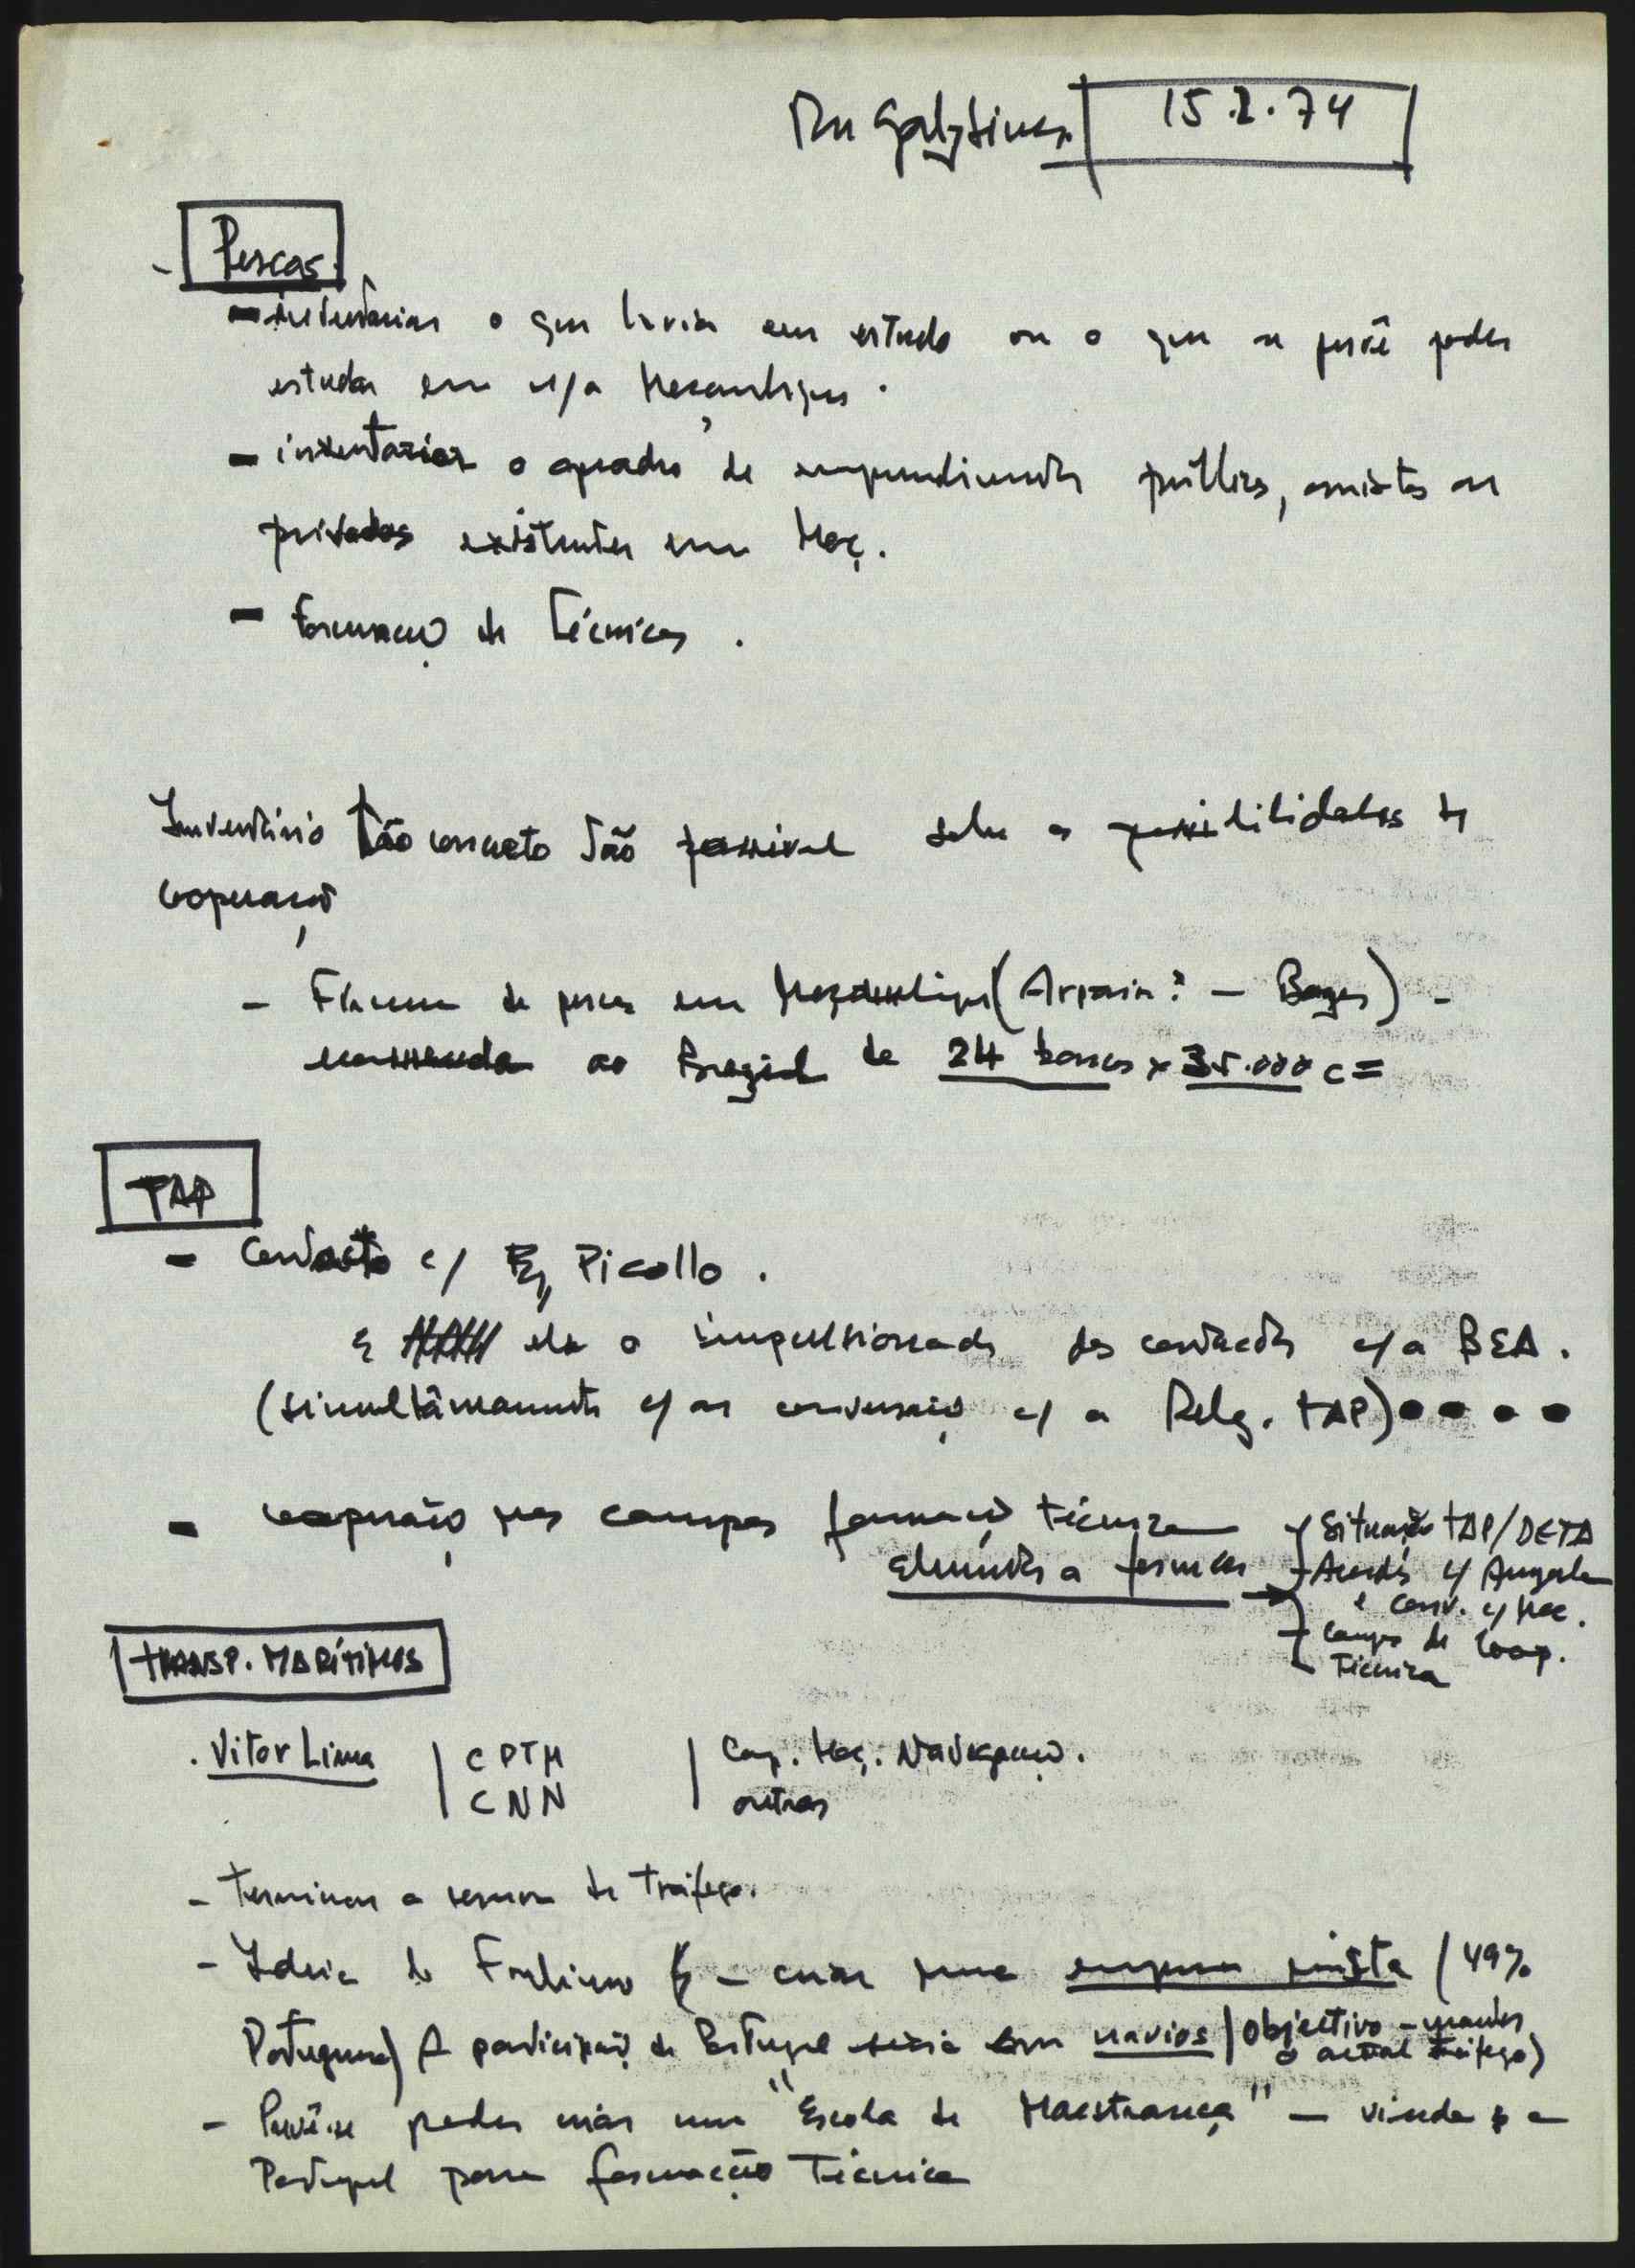 15.2.74
Pescas.
- inventariar o que havia em estudo ou o que se prevê poder
estudar em r/a Moçambique.
- inventariar o quadro de empreendimentos públicos, mistos ou
privados existentes em Moç.
- Formação de Técnicos.
Inventário tão concreto tão possível sobre as possibilidades de
cooperação
- de pesca em Moçambique (Arpain? - )-
encomenda ao Brazil de 24 barcos x 35.000 c =
TAP
- Contacto c/ Engº Picollo.
É ele o impulsionador dos contactos c/a BEA.
(simultâneamente c/ as conversações c/ a Deleg. TAP)
- Cooperação nos campos formação técnica
elementos a fornecer
Situação TAP/DETA
Acordos c/ Angola
e conv. c/ Moc.
Campo de Coop.
Técnica
TRANSP. MARÍTIMOS
. Vitor Lima | CPTM | Comp. Moç. Navegação.
CNN outras
- Terminar a reserva de tráfego.
- Ideia do - criar uma empresa mista (49%
Portuguesa) A participação de Portugal seria em navios (Objectivo - manter
o actual tráfego)
- Prevê-se poder criar uma "Escola de Mestrança" - vinda p a
Portugal para formação Técnica